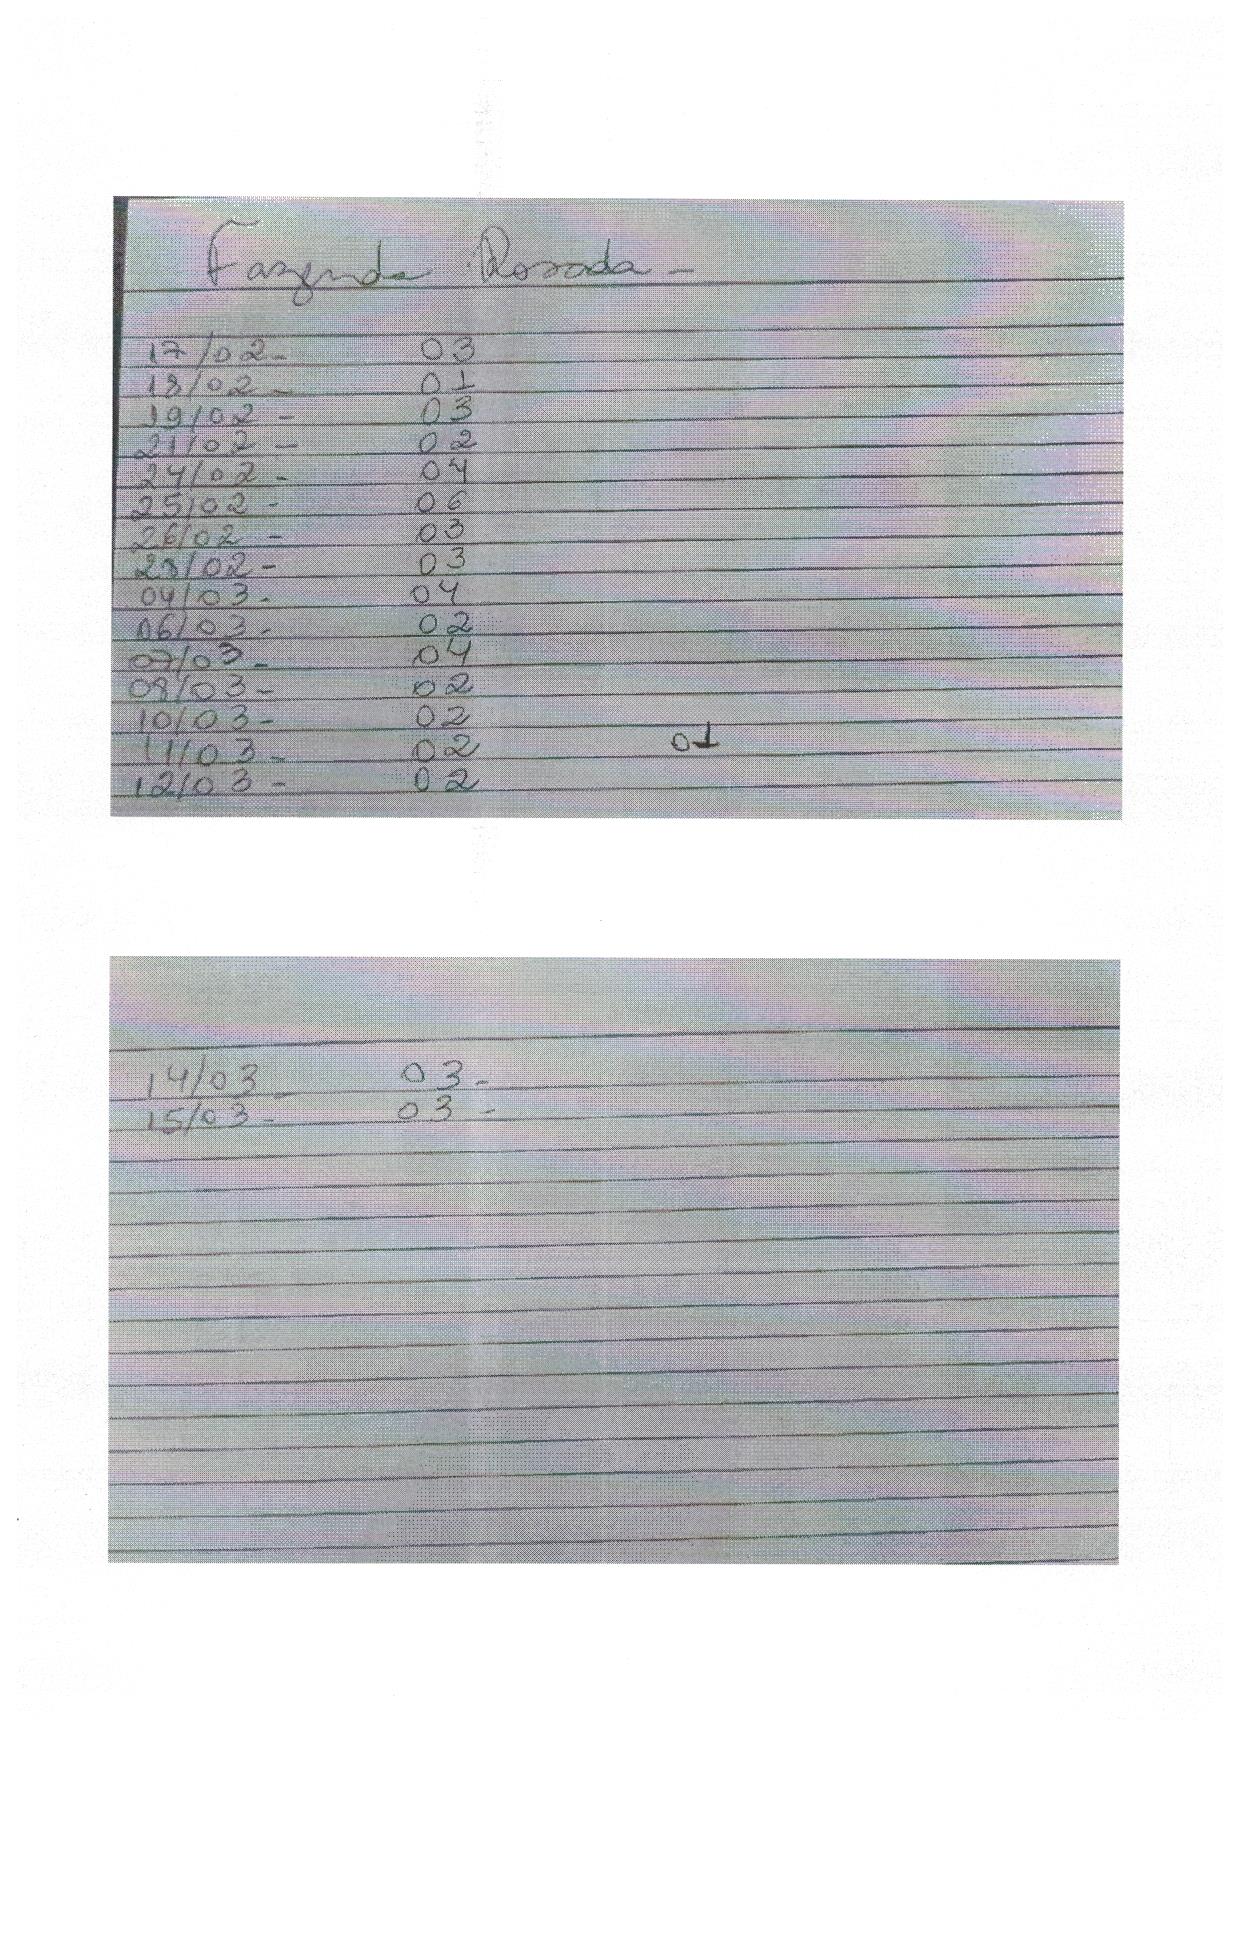 Fazenda Rosada -
17/02 - 03
18/02 - 01
19/02 - 03
21/02 - 02
24/02 - 04
25/02 - 06
26/02 - 03
28/02 - 03
04/03 - 04
06/03 - 02
07/03 - 04
08/03 - 02
10/03 - 02
11/03 - 02 01
12/03 - 02
14/03 - 03 -
15/03 - 03 -